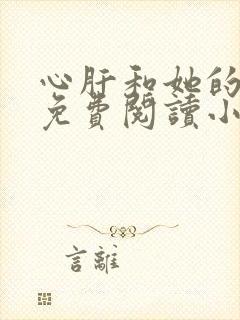 心肝和她的
免費閱讀小
言離